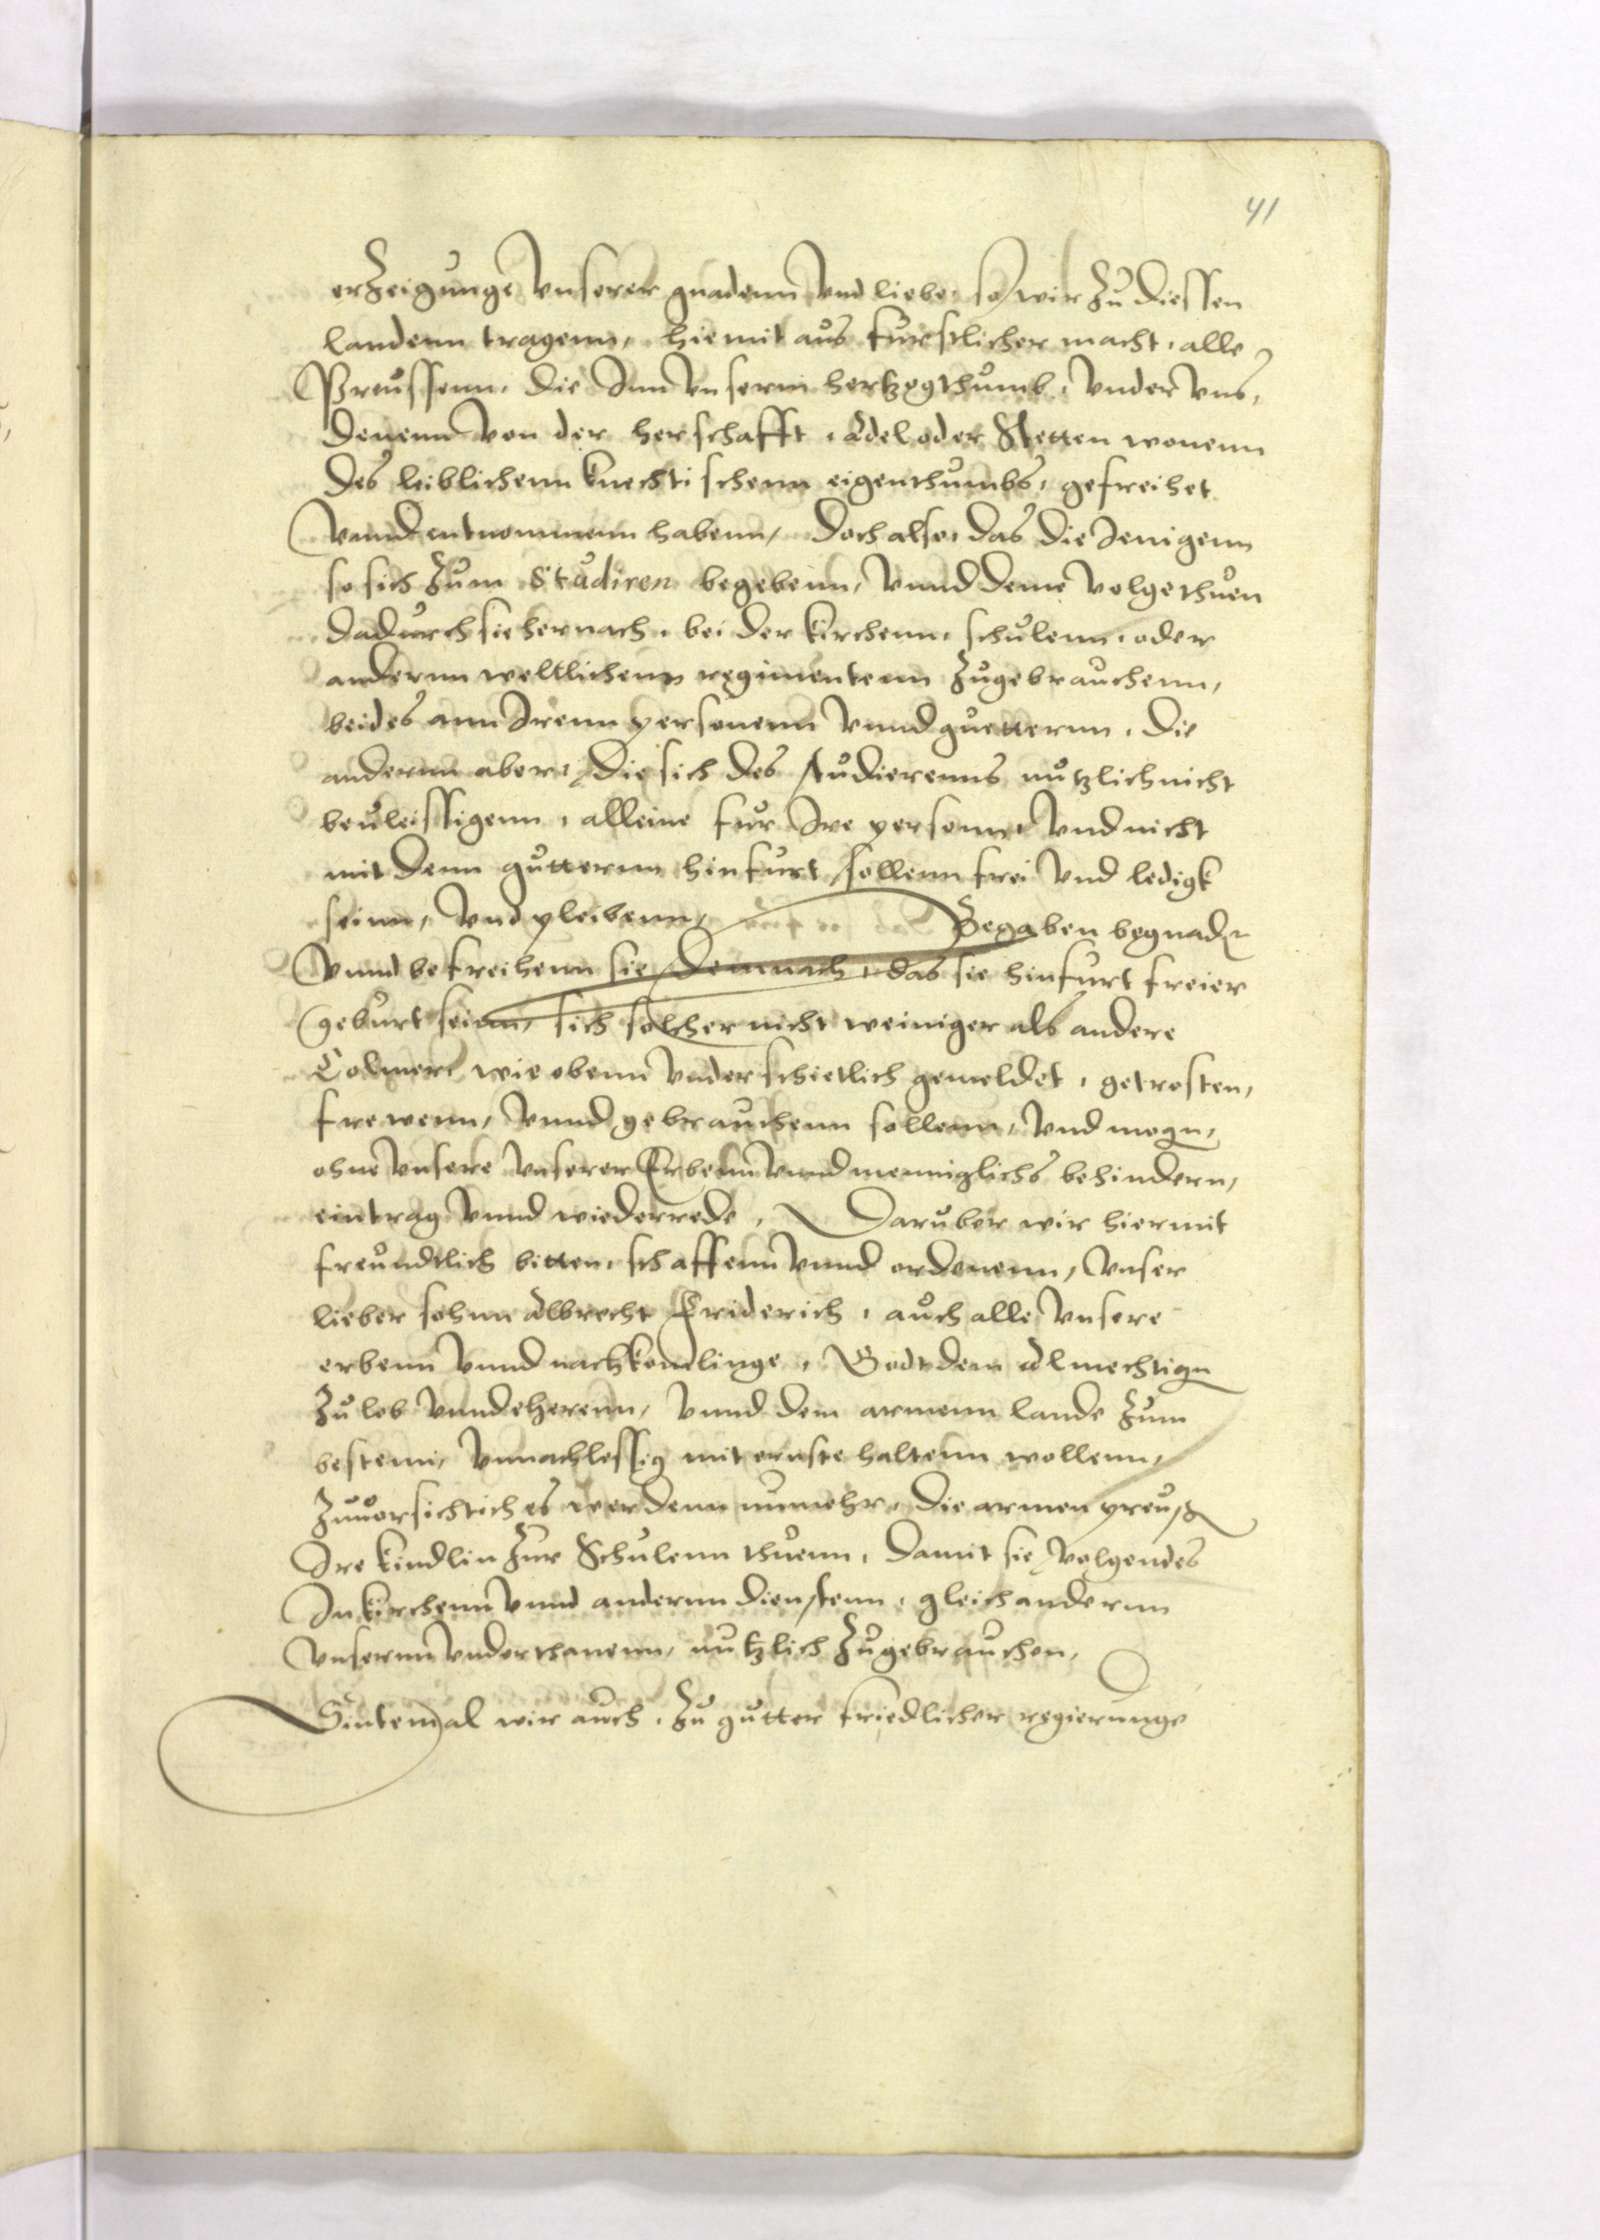 41
erzeigunge vnserer gnadenn vnd liebe, so wir zu diessen
landenn tragenn, hiemit aus furstlicher macht, alle
Preussenn, die Inn vnserm hertzogthumb, vnder vns,
denenn von der herschafft, Adel oder Stetten wonenn
des leiblichenn knechtischenn eigenthumbs, gefreihet
vnnd entnommenn habenn, doch also, das die Jenigenn
so sich zum Studiren begebenn, vnnd deme volge thuen
dadurch sie hernach, bei der kirchenn, schulenn, oder
andernn weltlichenn regimentenn zugebrauchenn,
beides ann Irenn personenn vnnd guetternn, die
andernn aber, die sich des studierenns nutzlich nicht
beuleissigenn, alleine fur Ire personn, vnd nicht
mit denn gutternn hinfurt sollenn frei vnd ledigk
seinn, vnd pleibenn, Begaben begnaden
vnnd befreihenn sie demnach, das sie hinfurt freier
geburt seinn, sich solcher nicht weiniger als andere
Colmer, wie obenn vnderschietlich gemeldet, getrosten,
frewenn, vnnd gebrauchenn sollenn, vnd mogen,
ohne vnsere vnserer Erbenn vnnd menniglichs behindern,
eintrag vnnd wiederrede, Daruber wir hiermit
freundtlich bitten, schaffenn vnnd ordenenn, vnser
lieber sohnn Albrecht Friderich, auch alle vnsere
erbenn vnnd nachkomlinge, Godt dem Almechtigen
zu lob vnnd eherenn, vnnd dem armenn lande zum
bestenn, vnnachlessig mit ernste haltenn wollenn,
zuuorsichtich es werdenn nunmehr, die armen preussen
Ire kindlin zur Schulenn thuenn, damit sie volgendes
In kirchenn vnnd andernn dienstenn, gleich andernn
vnsernn vnderthanenn, nutzlich zugebrauchen,
Sintemal wir auch, zu gutter friedlicher regierunge